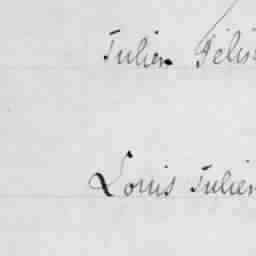 Julien Féli
Louis Julien